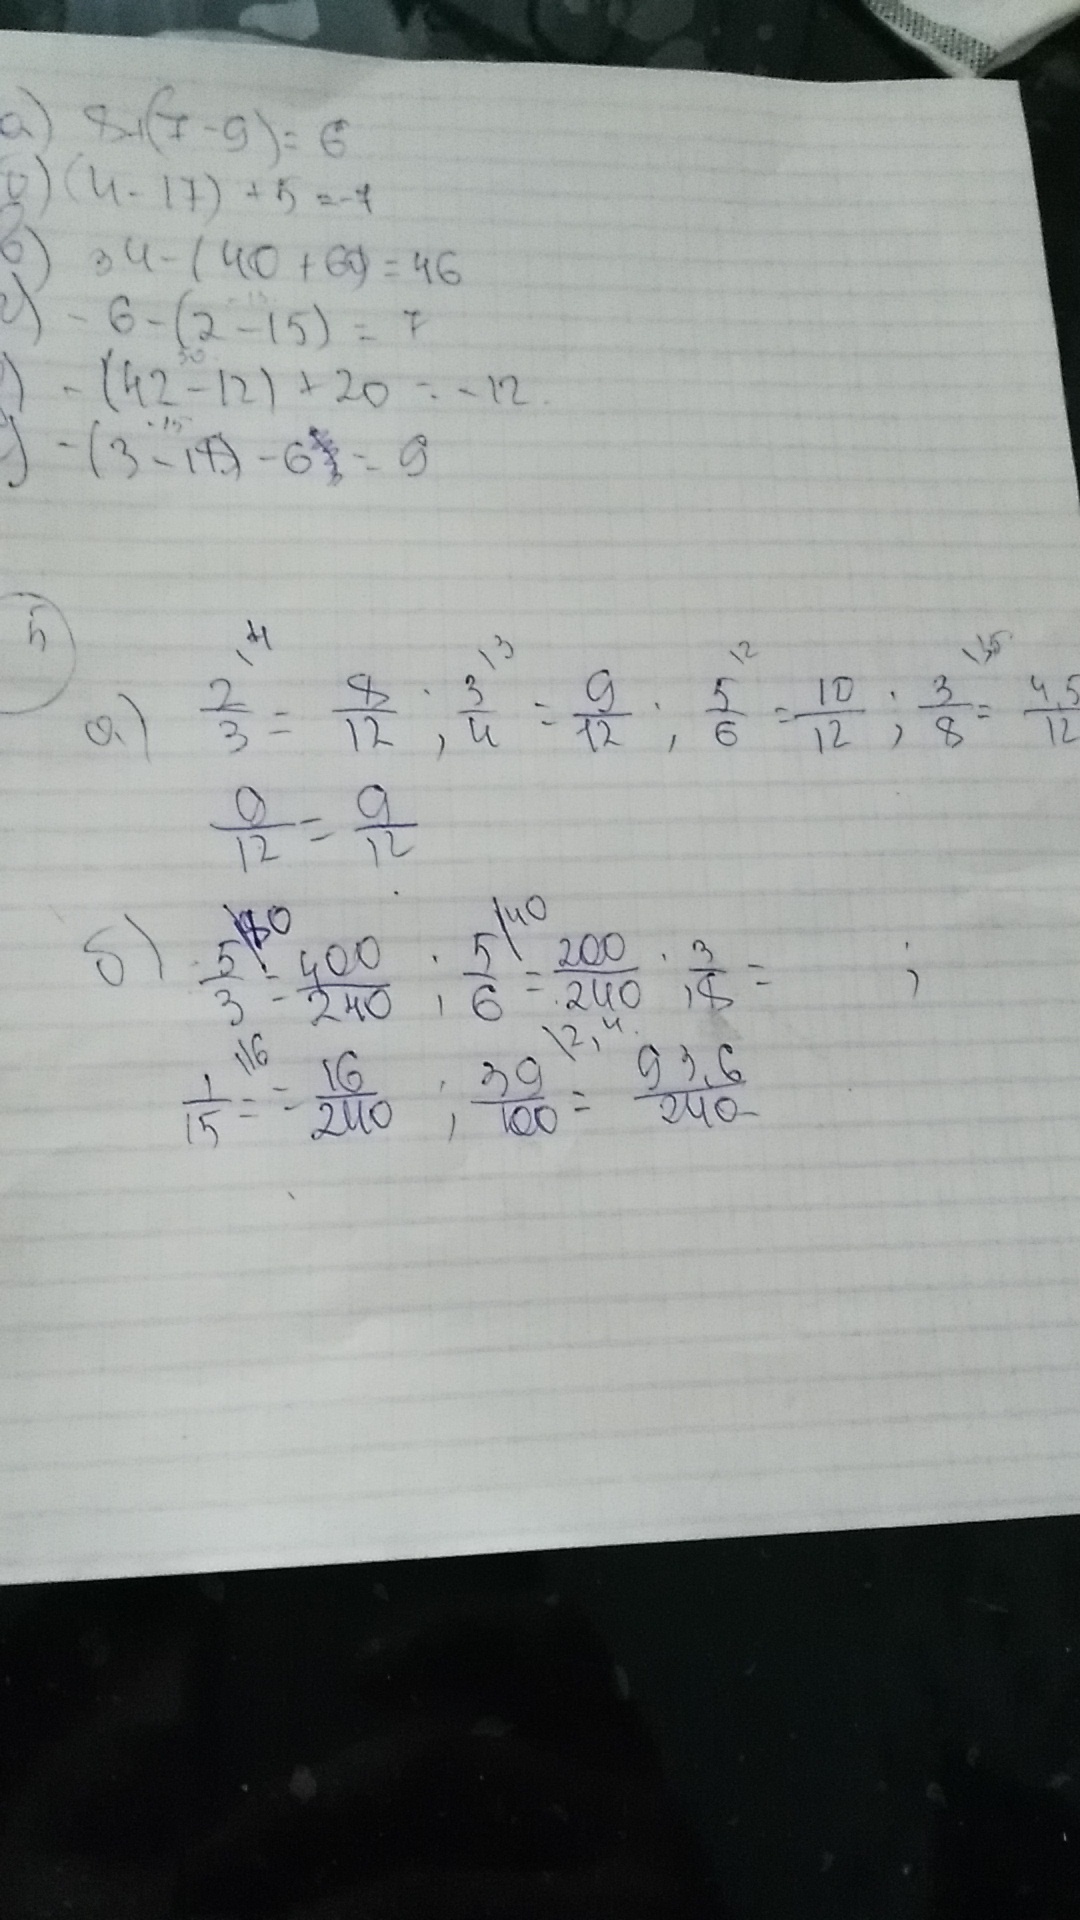 а) 8+(7-9)=6
б) (4-17)+5=-7
в) 34-(40+6)=46
г) -6-(2-15)=7
) -(42-12)+20=-12.
) -(3-18)-6=9
5
а) 2/3 \4 = 8/12 ; 3/4 \3 = 9/12 ; 5/6 \2 = 10/12 ; 3/8 \1,5 = 4,5/12
9/12 = 9/12
б) 5/3 \80 = 400/240 ; 5/6 \40 = 200/240 ; 3/8 = ;
1/15 \16 = 16/240 ; 39/100 \2,4 = 93,6/240